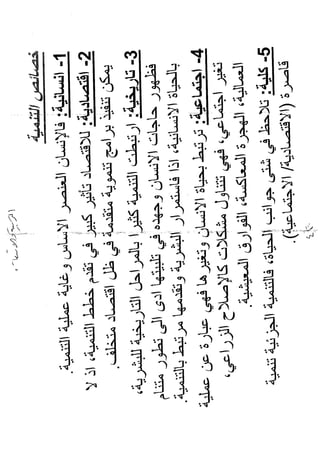 خصائص التنمية
1- انسانية: فالإنسان العنصر الاساس وغاية عملية التنمية.
2- اقتصادية: للاقتصاد تأثير كبير في تقدم خطط التنمية، اذ لا
يمكن تنفيذ برامج تنموية متقدمة في ظل اقتصاد متخلف.
3- تاريخية: ارتبطت التنمية كثيرا بالمراحل التاريخية للبشرية،
فظهور حاجات الانسان وجهده في تلبيتها ادى الى تطور متنام
بالحياة الانسانية، اذا فاستمرار البشرية وتقدمها مرتبط بالتنمية.
4- اجتماعية: ترتبط بحياة الانسان وتغيرها فهي عبارة عن عملية
تغير اجتماعي، فهي تتناول مشكلات كالإصلاح الزراعي،
العمالية، الهجرة المعاكسة، الفوارق المعيشية.
5- كلية: تلاحظ في شتى جوانب الحياة، فالتنمية الجزئية تنمية
قاصرة (الاقتصادية/ الاجتماعية).